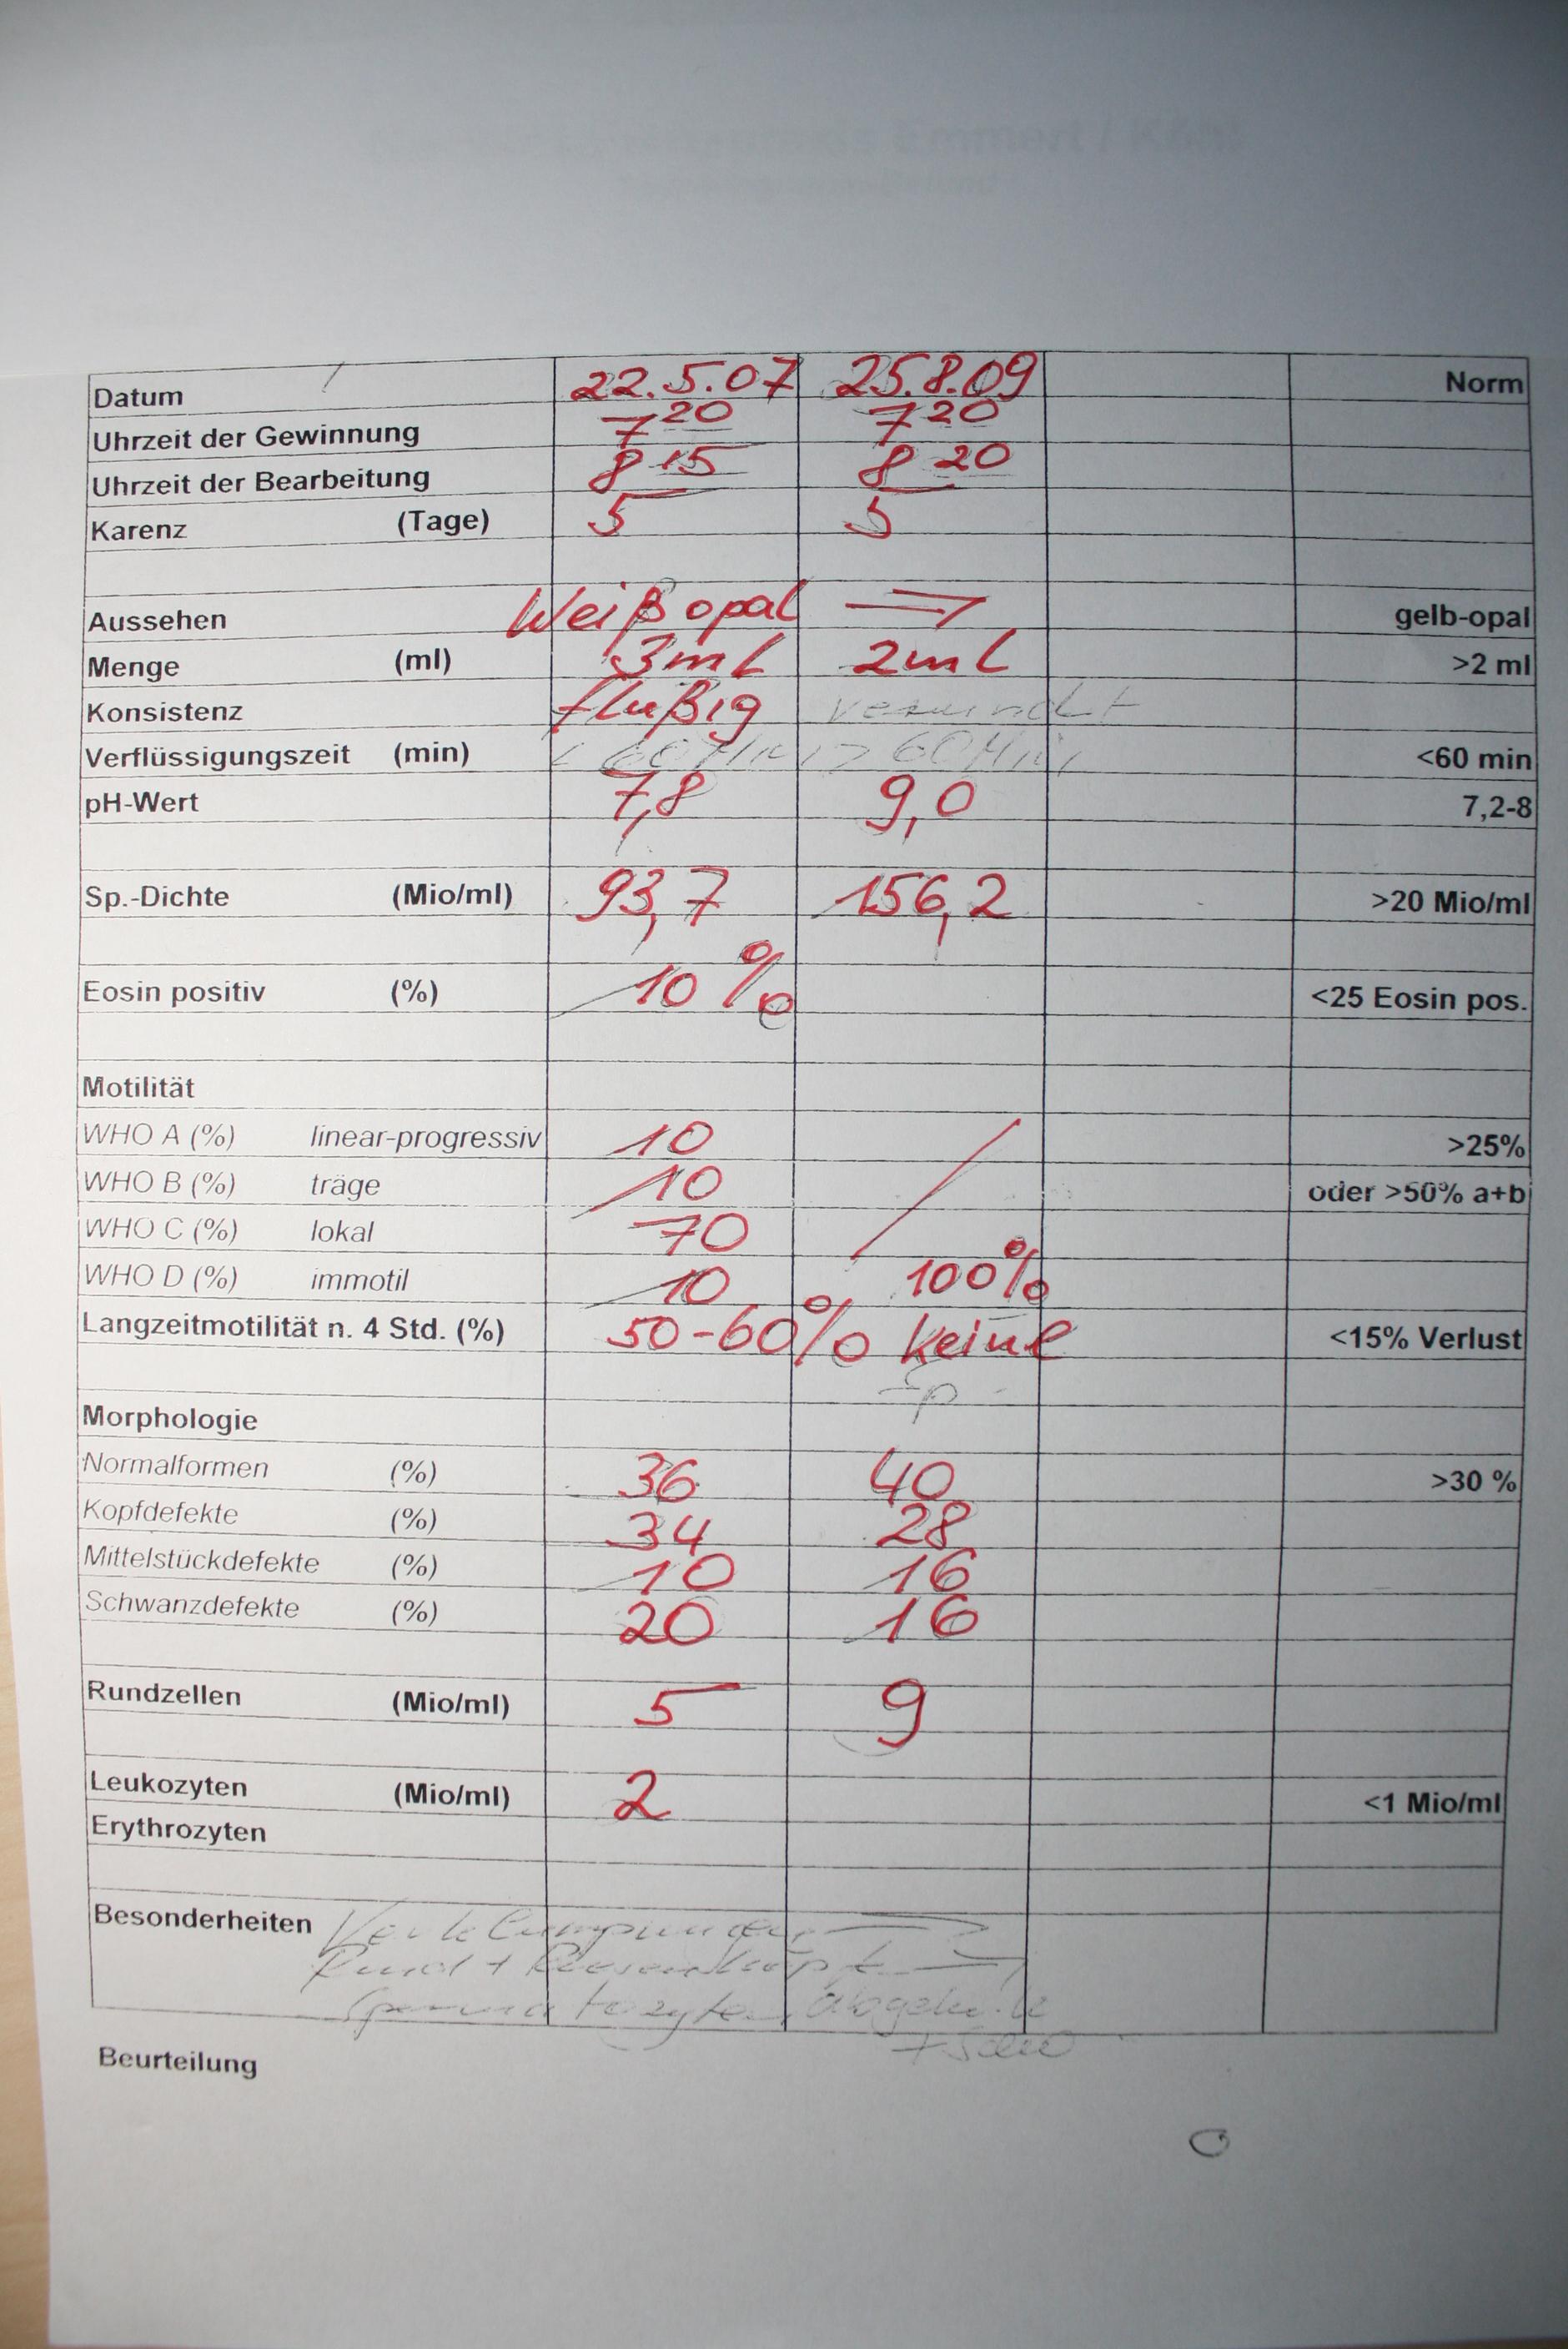 Datum 22.5.07 25.8.09 Norm
Uhrzeit der Gewinnung 7 20 7 20
Uhrzeit der Bearbeitung 8 15 8 20
Karenz (Tage) 5 5
Aussehen Weiß opal gelb-opal
Menge (ml) 3ml 2ml >2 ml
Konsistenz flußig
Verflüssigungszeit (min) < 60 Min > 60 Min <60 min
pH-Wert 7,8 9,0 7,2-8
Sp.-Dichte (Mio/ml) 93,7 156,2 >20 Mio/ml
Eosin positiv (%) 10 % <25 Eosin pos.
Motilität
WHO A (%) linear-progressiv 10 >25%
WHO B (%) träge 10 oder >50% a+b
WHO C (%) lokal 70
WHO D (%) immotil 10 100%
Langzeitmotilität n. 4 Std. (%) 50-60% keine <15% Verlust
Morphologie
Normalformen (%) 36 40 >30 %
Kopfdefekte (%) 34 28
Mittelstückdefekte (%) 10 16
Schwanzdefekte (%) 20 16
Rundzellen (Mio/ml) 5 9
Leukozyten (Mio/ml) 2 <1 Mio/ml
Erythrozyten
Besonderheiten Verklumpungen
Rund + Riesenköpfe
Spermatozyten
Beurteilung